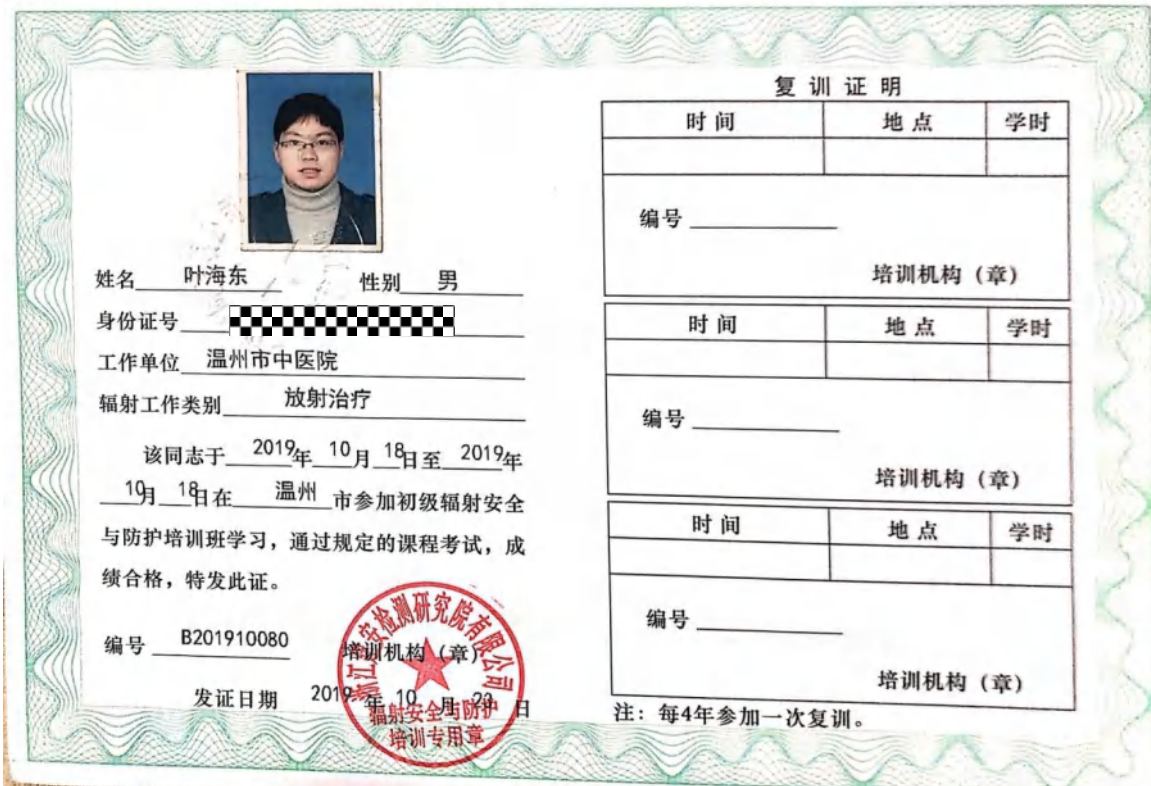 姓名 叶海东 性别 男
身份证号
工作单位 温州市中医院
辐射工作类别 放射治疗
该同志于 2019年 10月 18日至 2019年
10月 18日在 温州 市参加初级辐射安全
与防护培训班学习，通过规定的课程考试，成
绩合格，特发此证。
编号 B201910080
培训机构（章）
发证日期 2019年 10月 23日
检测研究院有限公司
辐射安全与防护
培训专用章
复训证明
时间 地点 学时
编号
培训机构（章）
时间 地点 学时
编号
培训机构（章）
时间 地点 学时
编号
培训机构（章）
注：每4年参加一次复训。